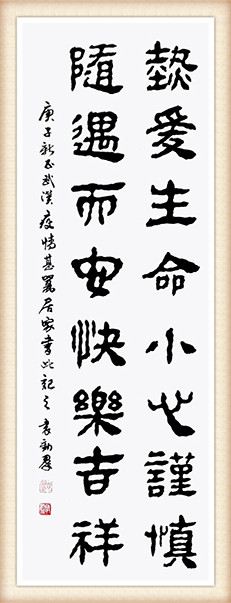 熱愛生命小心謹慎
隨遇而安快樂吉祥
庚子新正武漢疫情甚居家書此記之 袁